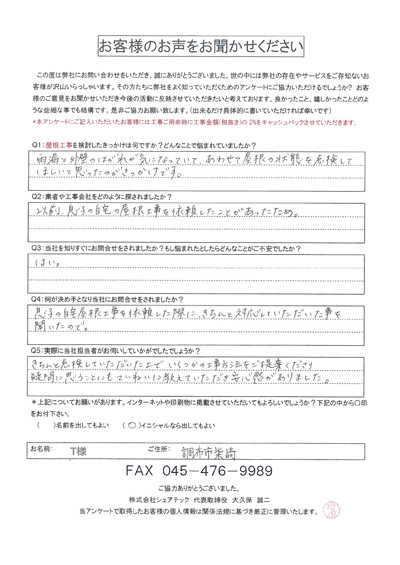 お客様のお声をお聞かせください
この度は弊社にお問い合わせをいただき、誠にありがとうございました。世の中には弊社の存在やサービスをご存知ないお
客様が沢山いらっしゃいます。その方たちに弊社をよく知っていただくためのアンケートにご協力いただけるでしょうか？ お客
様のご意見をお聞かせいただき今後の活動に反映させていただきたいと考えております。良かったこと、嬉しかったことどのよ
うな些細な事でも結構です。是非ご協力お願い致します。（出来るだけ具体的に書いていただければ幸いです）
*本アンケートにご記入いただいたお客様には工事ご用命時に工事金額（税抜き）の 2%をキャッシュバックさせていただきます。
Q1：屋根工事を検討したきっかけは何ですか？どんなことで悩まれていましたか？
雨漏と外壁のはがれが気になっていて、あわせて屋根の状態を点検して
ほしいと思ったのがきっかけです。
Q2：業者や工事会社をどのように探されましたか？
以前、息子の自宅の屋根工事を依頼したことがあったため。
Q3：当社を知りすぐにお問合せをされましたか？もし悩まれたとしたらどんなことがご不安でしたか？
はい。
Q4：何が決め手となり当社にお問合せをされましたか？
息子の自宅屋根工事を依頼した際に、きちんと対応していただいた事を
聞いたので。
Q5：実際に当社担当者がお伺いしていかがでしたでしょうか？
きちんと点検していただいた上で、いくつかの工事方法をご提案くださり
疑問に思うことにもていねいに教えていただき安心感がありました。
＊上記についてお願いがあります。インターネットや印刷物に掲載させていただいてもよろしいでしょうか？下記の中から〇印
をお付下さい。
（　）名前を出してもよい　（〇）イニシャルなら出してもよい
お名前: T様 ご住所: 調布市柴崎
FAX 045-476-9989
ご協力ありがとうございました。
株式会社シェアテック 代表取締役 大久保 誠二
当アンケートで取得したお客様の個人情報は関係法規に基づき厳正に管理いたします。